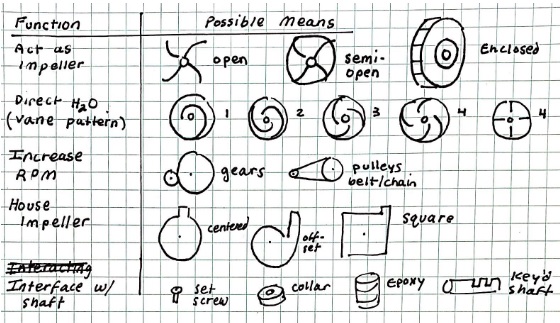 Function Possible Means
Act as
Impeller
open
semi-
open
Enclosed
Direct H2O
(vane pattern)
1 2 3 4 4
Increase
RPM
gears
pulleys
belt/chain
House
Impeller
centered
off-
set
square
Interacting
Interface w/
shaft
set
screw
collar
Epoxy
Key'd
shaft